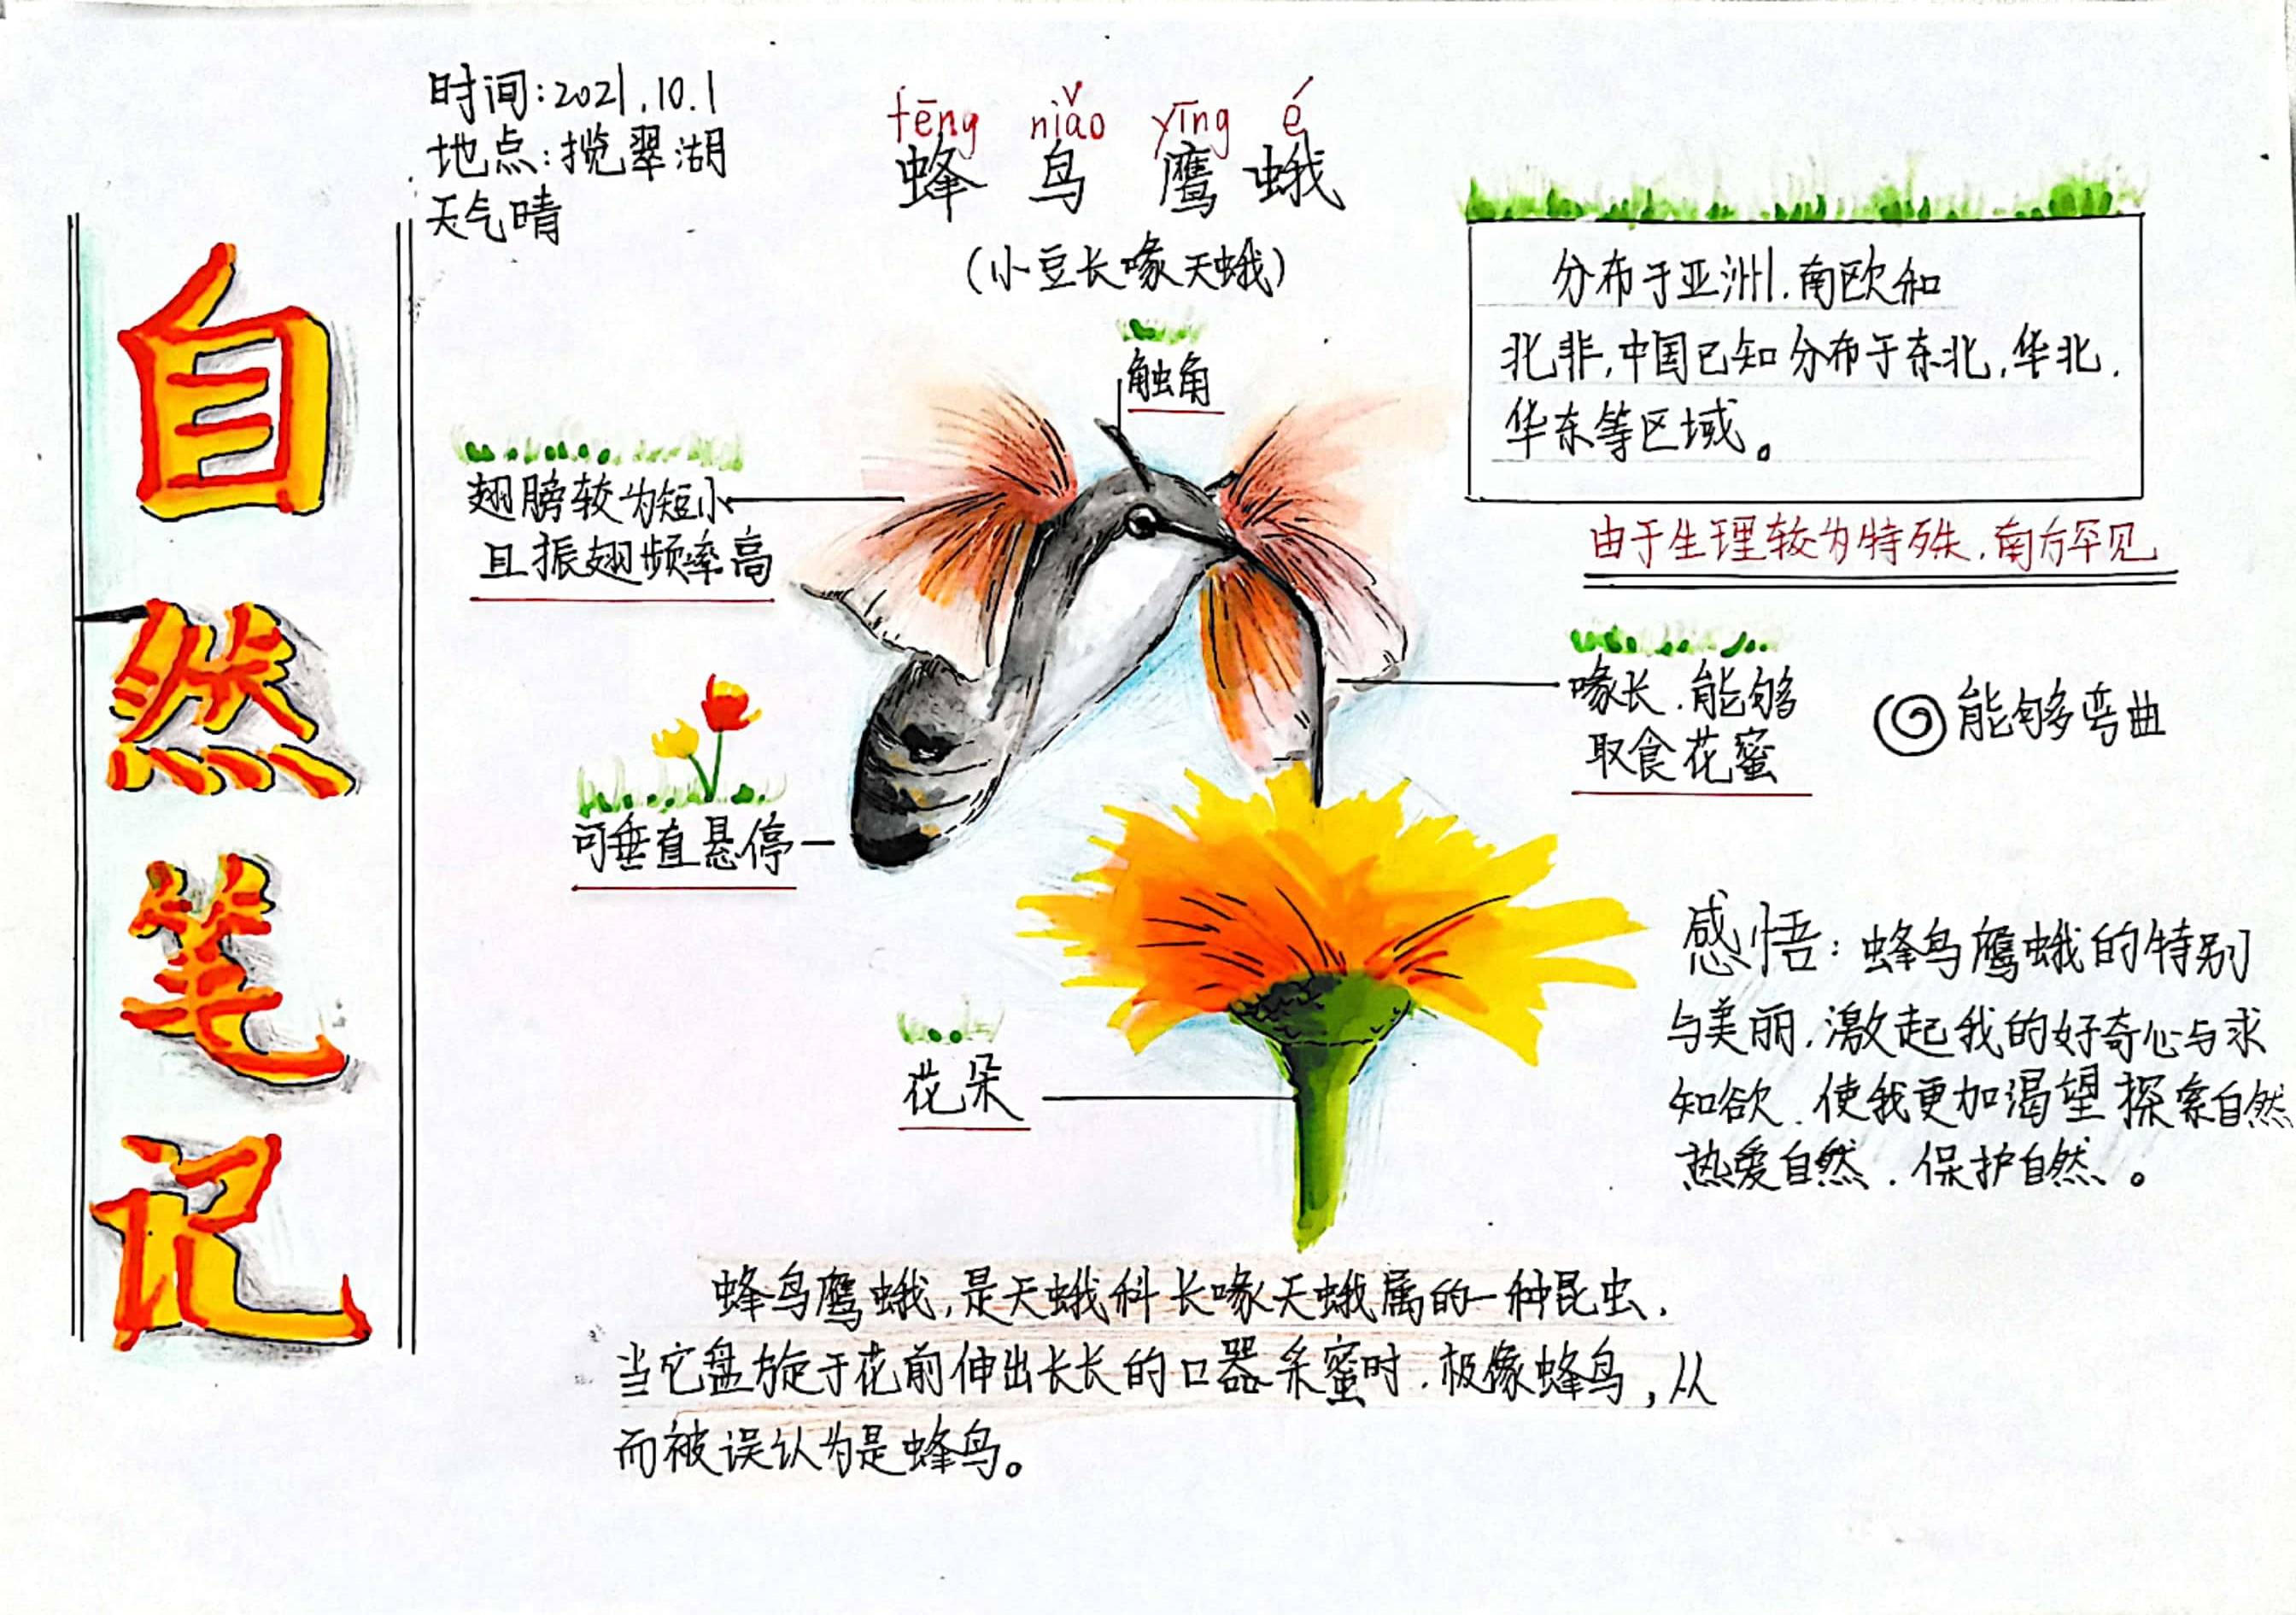 自然笔记
时间:2021.10.1
地点:揽翠湖
天气晴
fēng niǎo yīng é
蜂鸟鹰蛾
(小豆长喙天蛾)
触角
分布于亚洲.南欧和
北非,中国已知分布于东北,华北.
华东等区域。
由于生理较为特殊.南方罕见
翅膀较为短小
且振翅频率高
喙长.能够
取食花蜜
能够弯曲
可垂直悬停
花朵
感悟:蜂鸟鹰蛾的特别
与美丽.激起我的好奇心与求
知欲.使我更加渴望探索自然
热爱自然.保护自然。
蜂鸟鹰蛾,是天蛾科长喙天蛾属的一种昆虫.
当它盘旋于花前伸出长长的口器采蜜时.极像蜂鸟,从
而被误认为是蜂鸟。